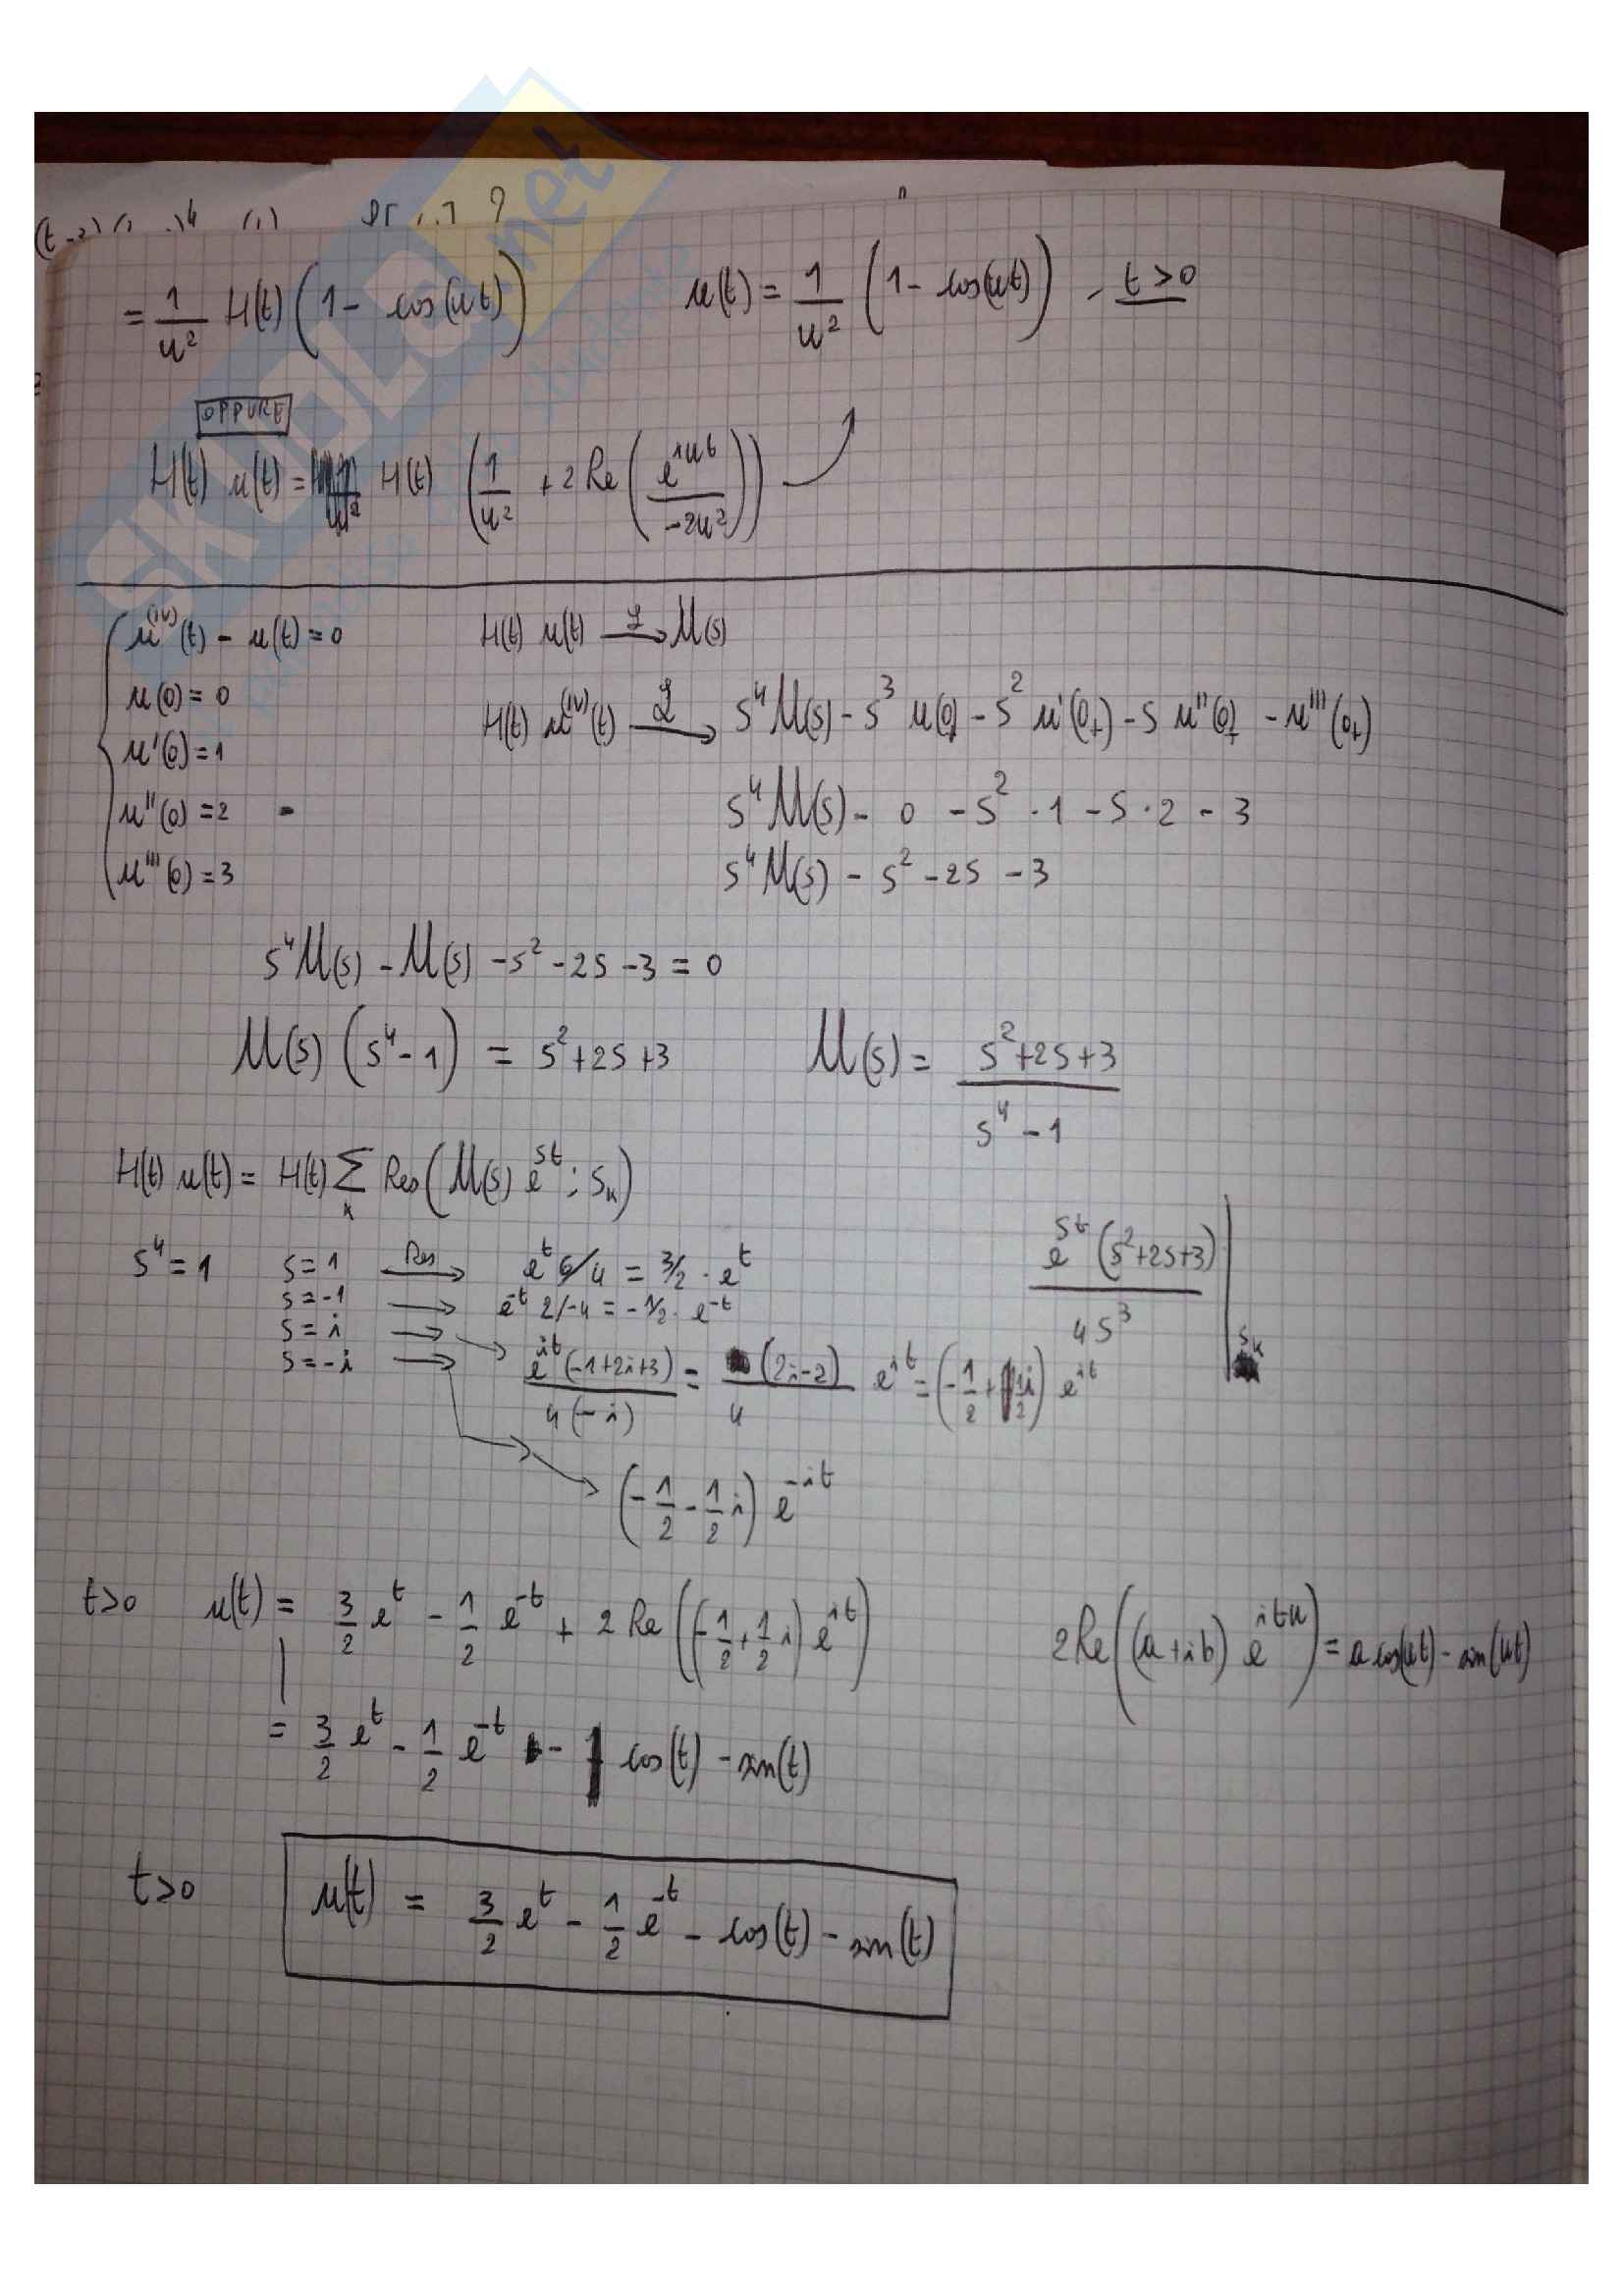 = 1/u² H(t) (1 - cos(ut))    u(t) = 1/u² (1 - cos(ut)) - t>0
OPPURE
H(t) u(t) = H(t) (1/u² + 2Re(e^{iut}/-2u²))
u^{(IV)}(t) - u(t) = 0    H(t) u(t) →ℒ U(s)
u(0) = 0
H(t) u^{(IV)}(t) →ℒ s⁴U(s) - s³ u(0) - s² u'(0₊) - s u''(0₊) - u'''(0₊)
u'(0) = 1
u''(0) = 2 -    s⁴U(s) - 0 - s² · 1 - s · 2 - 3
u'''(0) = 3    s⁴U(s) - s² - 2s - 3
s⁴U(s) - U(s) - s² - 2s - 3 = 0
U(s) (s⁴ - 1) = s² + 2s + 3    U(s) = s² + 2s + 3 / s⁴ - 1
H(t) u(t) = H(t) Σ_k Res(U(s) e^{st} ; s_k)
s⁴ = 1    s = 1 →Res e^t 6/4 = 3/2 · e^t    e^{st}(s²+2s+3) / 4s³ | s_k
s = -1 → e^{-t} 2/-4 = -1/2 · e^{-t}
s = i → → e^{it}(-1+2i+3) / 4(-i) = (2i-2) / 4 e^{it} = (-1/2 + 1/2 i) e^{it}
s = -i →
→ → (-1/2 - 1/2 i) e^{-it}
t>0    u(t) = 3/2 e^t - 1/2 e^{-t} + 2Re((-1/2 + 1/2 i) e^{it})    2Re((a+ib) e^{itu}) = a cos(ut) - sin(ut)
= 3/2 e^t - 1/2 e^{-t} - 1 cos(t) - sin(t)
t>0    u(t) = 3/2 e^t - 1/2 e^{-t} - cos(t) - sin(t)